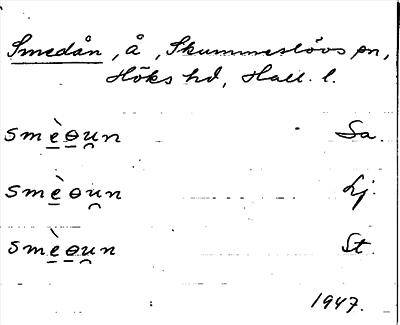 Smedån, å, Skummeslövs sn,
Höks hd, Hall. l.
smèɵu̯n Sa.
smèɵu̯n Lj.
smèɵu̯n St.
1947.